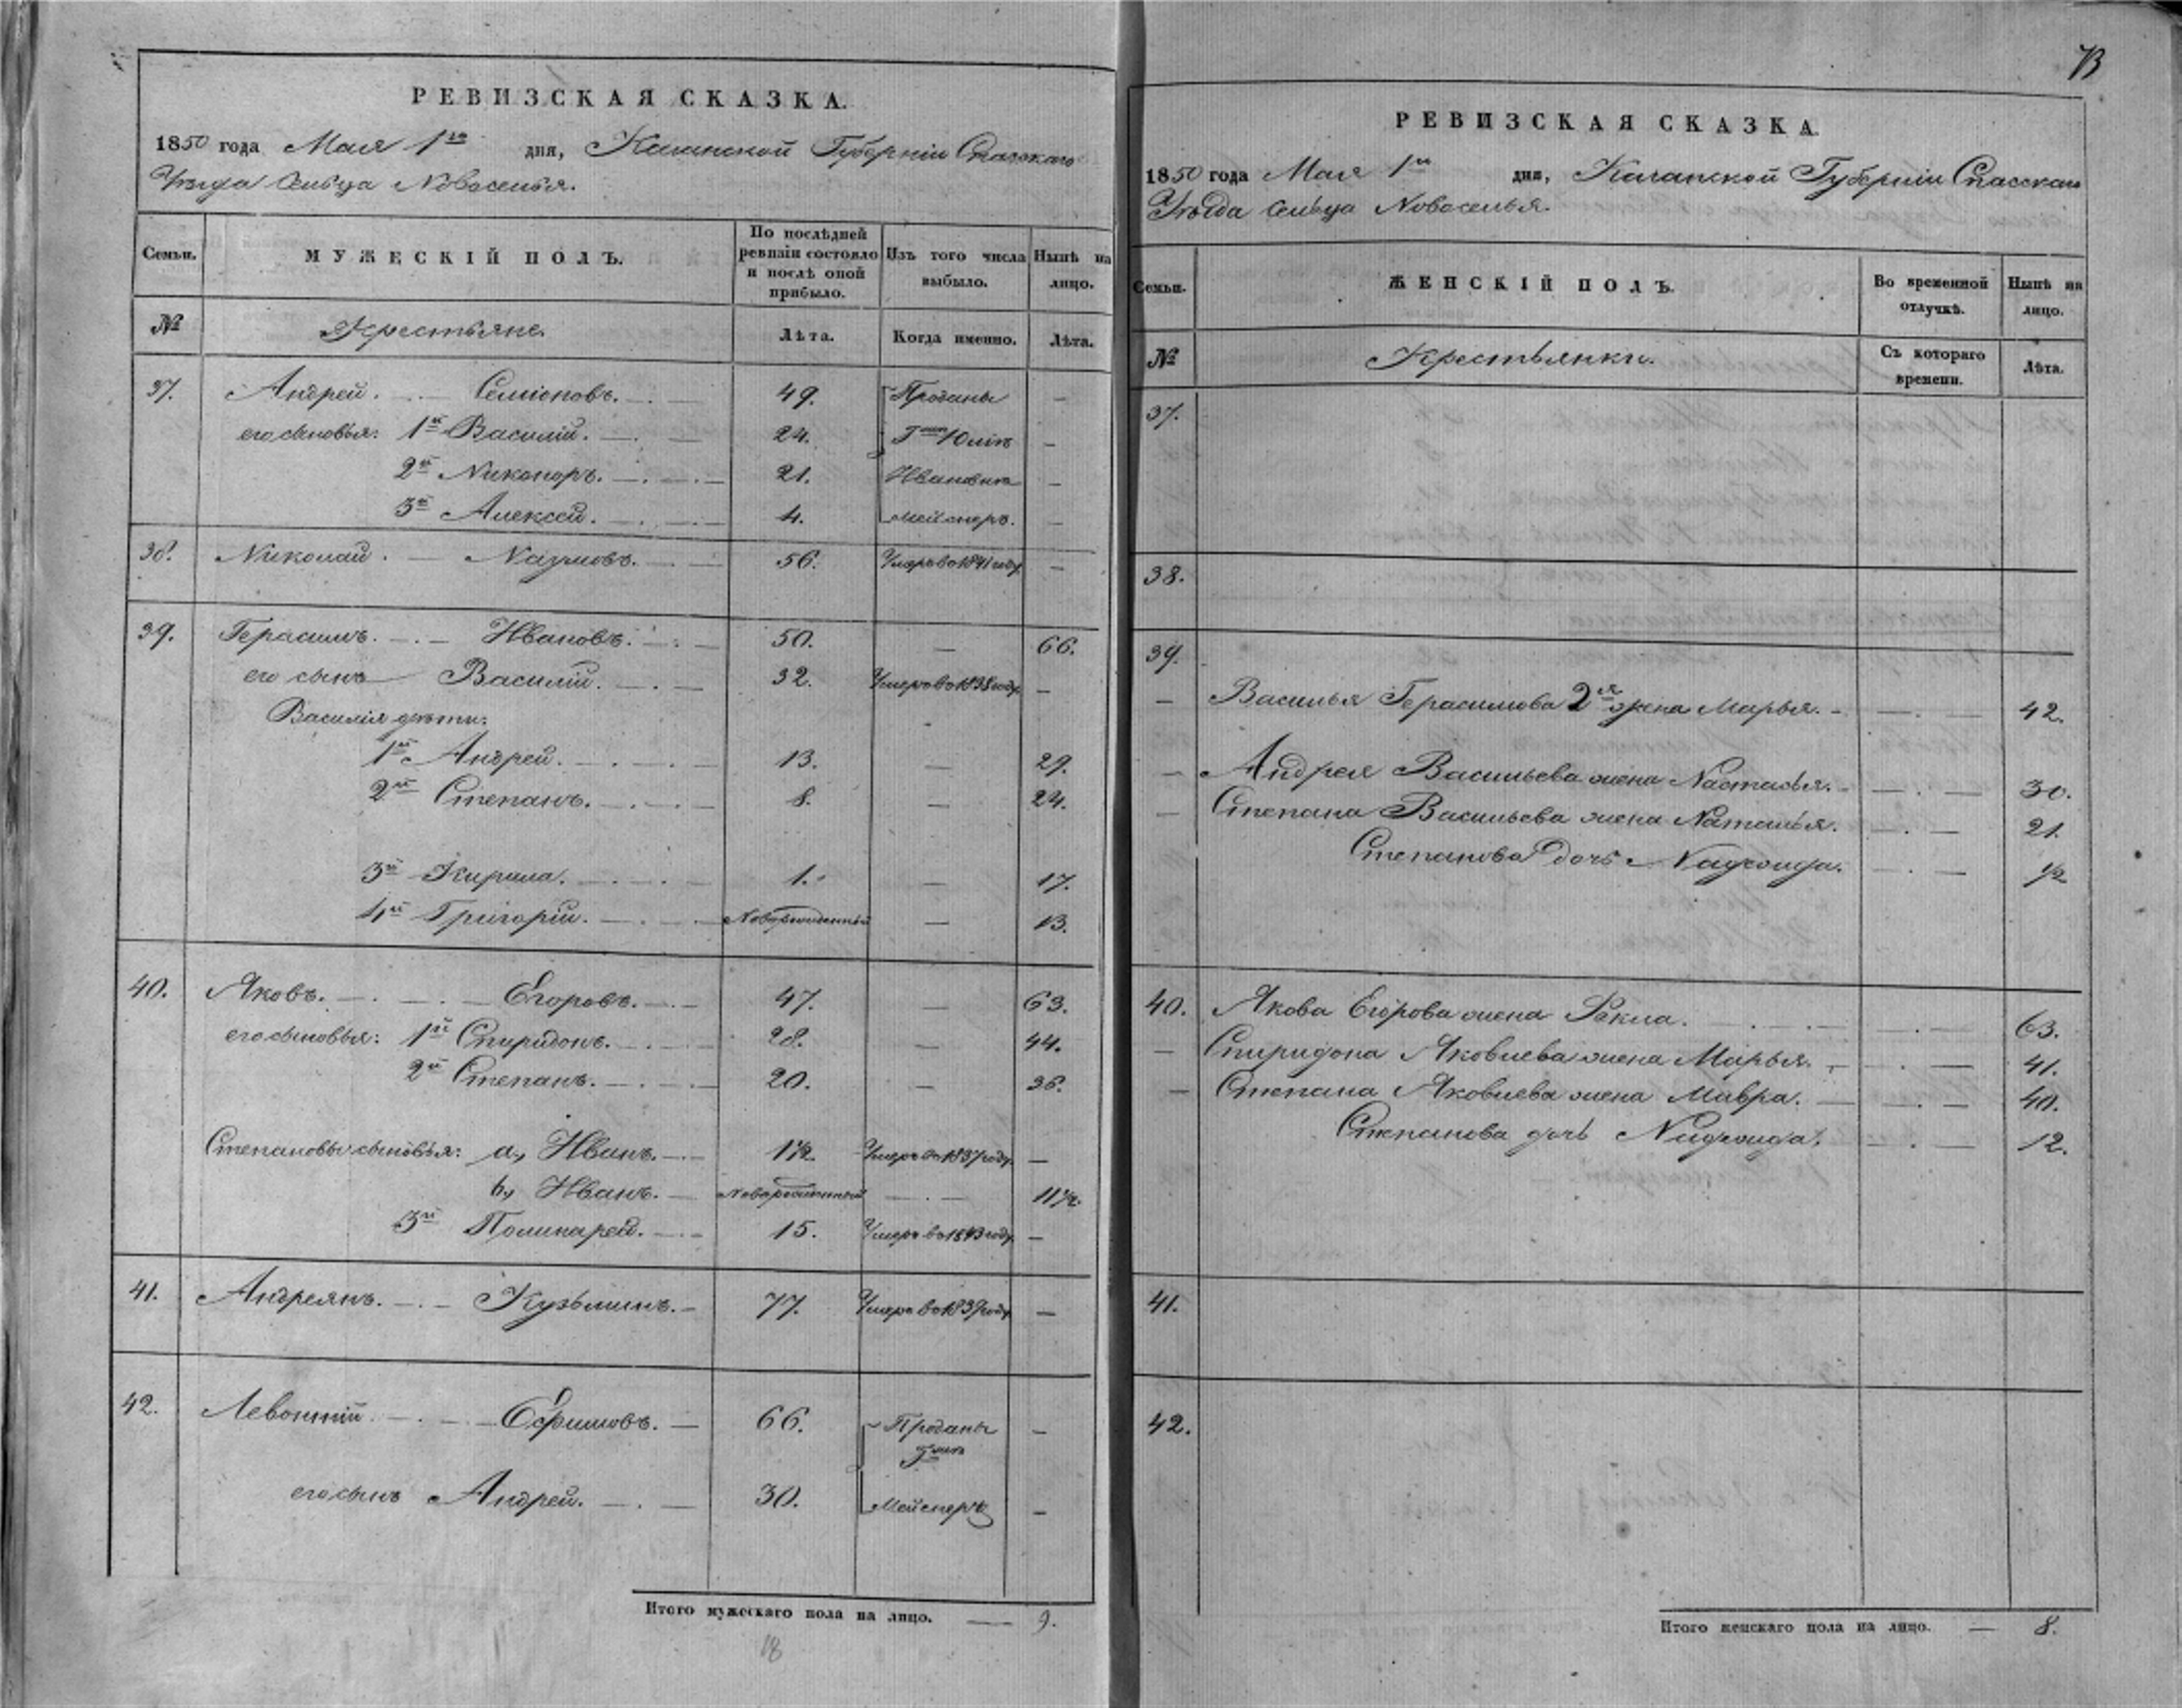 РЕВИЗСКАЯ СКАЗКА.
1850 года Мая 1го дня, Казанской Губерніи Спасскаго
Уѣзда Сельца Новоселья.
Семьи. МУЖЕСКІЙ ПОЛЪ. По послѣдней ревизіи состояло и послѣ оной прибыло. Изъ того числа выбыло. Нынѣ на лицо.
№ Крестьяне. Лѣта. Когда именно. Лѣта.
37. Андрей. Семіоновъ. 49. Проданы —
его сыновья: 1й Василій. 24. Гжѣ Юліѣ —
2й Никоноръ. 21. Ивановнѣ —
3й Алексей. 4. Мейснеръ. —
38. Николай. Наумовъ. 56. Умеръ въ 1841 году —
39. Герасимъ. Ивановъ. 50. — 66.
его сынъ Василій. 32. Умеръ въ 1838 году —
Василія дѣти:
1й Андрей. 13. — 29.
2й Степанъ. 8. — 24.
3й Кирила. 1. — 17.
4й Григорій. Новорожденный — 13.
40. Яковъ. Егоровъ. 47. — 63.
его сыновья: 1й Спиридонъ. 28. — 44.
2й Степанъ. 20. — 36.
Степановы сыновья: а, Иванъ. 1½. Умеръ въ 1837 году. —
b, Иванъ. Новорожденный — 11½.
3й Поликарпъ. 15. Умеръ въ 1843 году. —
41. Андреянъ. Кузьминъ. 77. Умеръ въ 1839 году —
42. Левонтій Ефимовъ. 66. Проданы —
Гжѣ
его сынъ Андрей. 30. Мейснеръ —
Итого мужескаго пола на лицо. — 9.
18
73
РЕВИЗСКАЯ СКАЗКА.
1850 года Мая 1го дня, Казанской Губерніи Спасскаго
Уѣзда Сельца Новоселья.
Семьи. ЖЕНСКІЙ ПОЛЪ. Во временной отлучкѣ. Нынѣ на лицо.
№ Крестьянки. Съ котораго времени. Лѣта.
37.
38.
39.
— Василья Герасимова 2я жена Марья. — 42.
— Андрея Васильева жена Настасья. — 30.
— Степана Васильева жена Наталья. — 21.
Степанова дочь Надежда. — ½
40. Якова Егорова жена Фекла. — 63.
— Спиридона Яковлева жена Марья. — 41.
— Степана Яковлева жена Мавра. — 40.
Степанова дочь Надежда. — 12.
41.
42.
Итого женскаго пола на лицо. — 8.